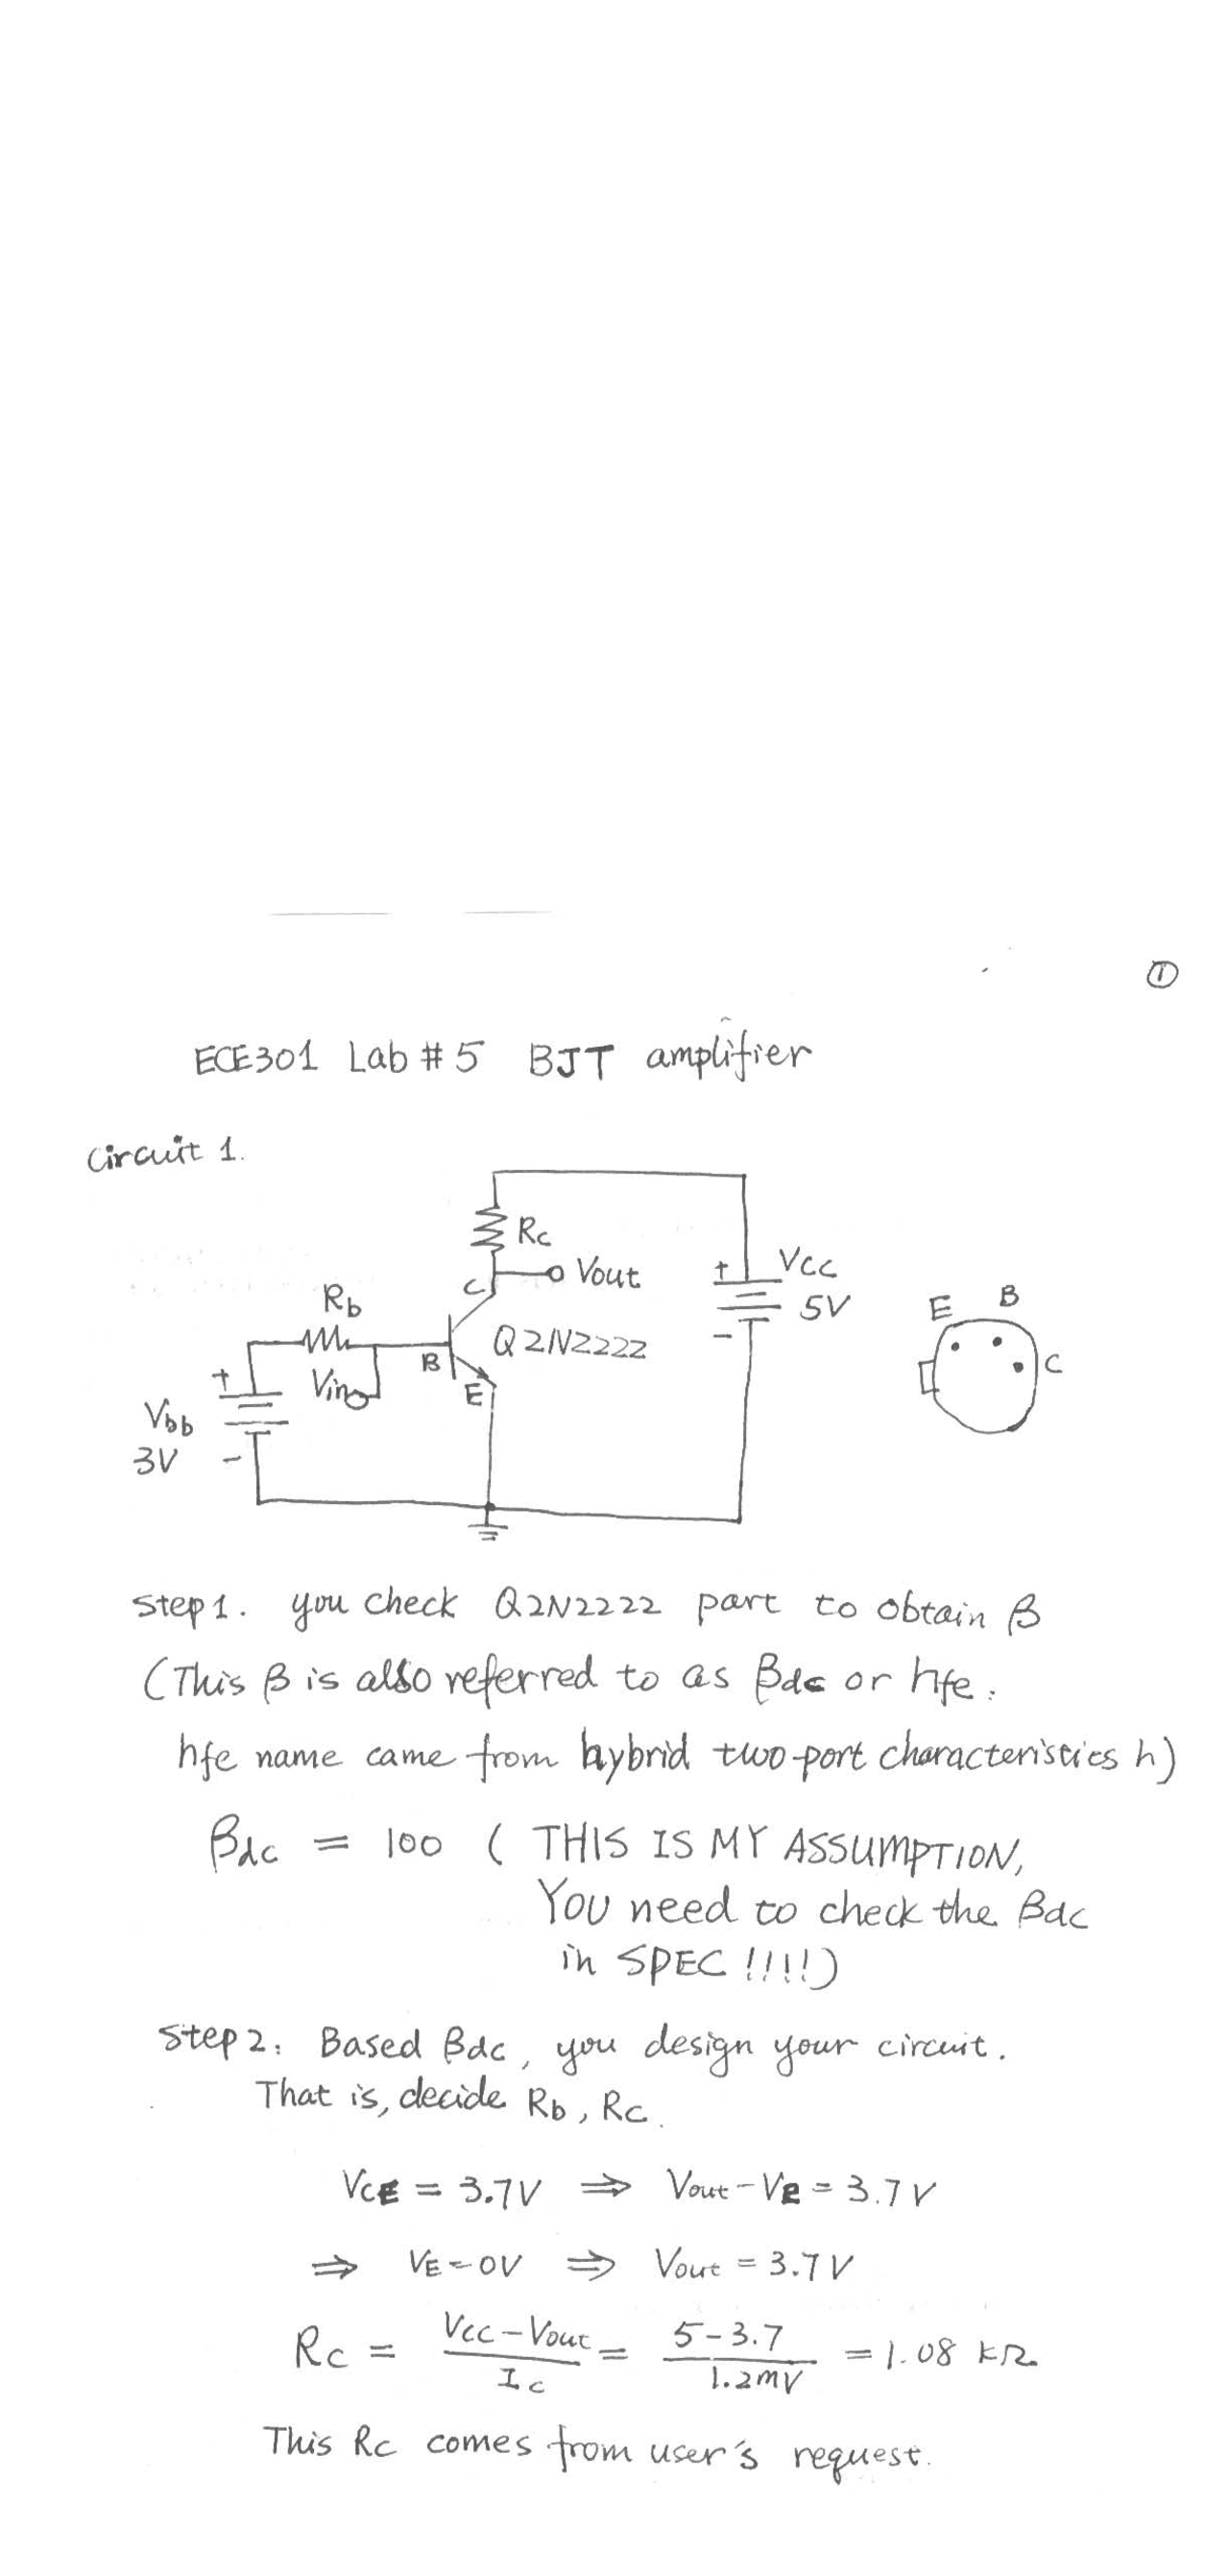 ①
ECE301 Lab #5 BJT amplifier
Circuit 1.
Rc
Vout
C
Vcc
5V
+
-
Rb
Q2N2222
B
E
Vin
+
Vbb
3V
-
E B
C
Step1. you check Q2N2222 part to obtain β
(This β is also referred to as βdc or hfe.
hfe name came from hybrid two-port characteristics h)
βdc = 100 ( THIS IS MY ASSUMPTION,
YOU need to check the βdc
in SPEC !!!!)
Step2. Based βdc, you design your circuit.
That is, decide Rb, Rc.
VCE = 3.7V ⇒ Vout - VE = 3.7V
⇒ VE = 0V ⇒ Vout = 3.7V
Rc = (Vcc - Vout)/Ic = (5-3.7)/1.2mV = 1.08 kΩ
This Rc comes from user's request.